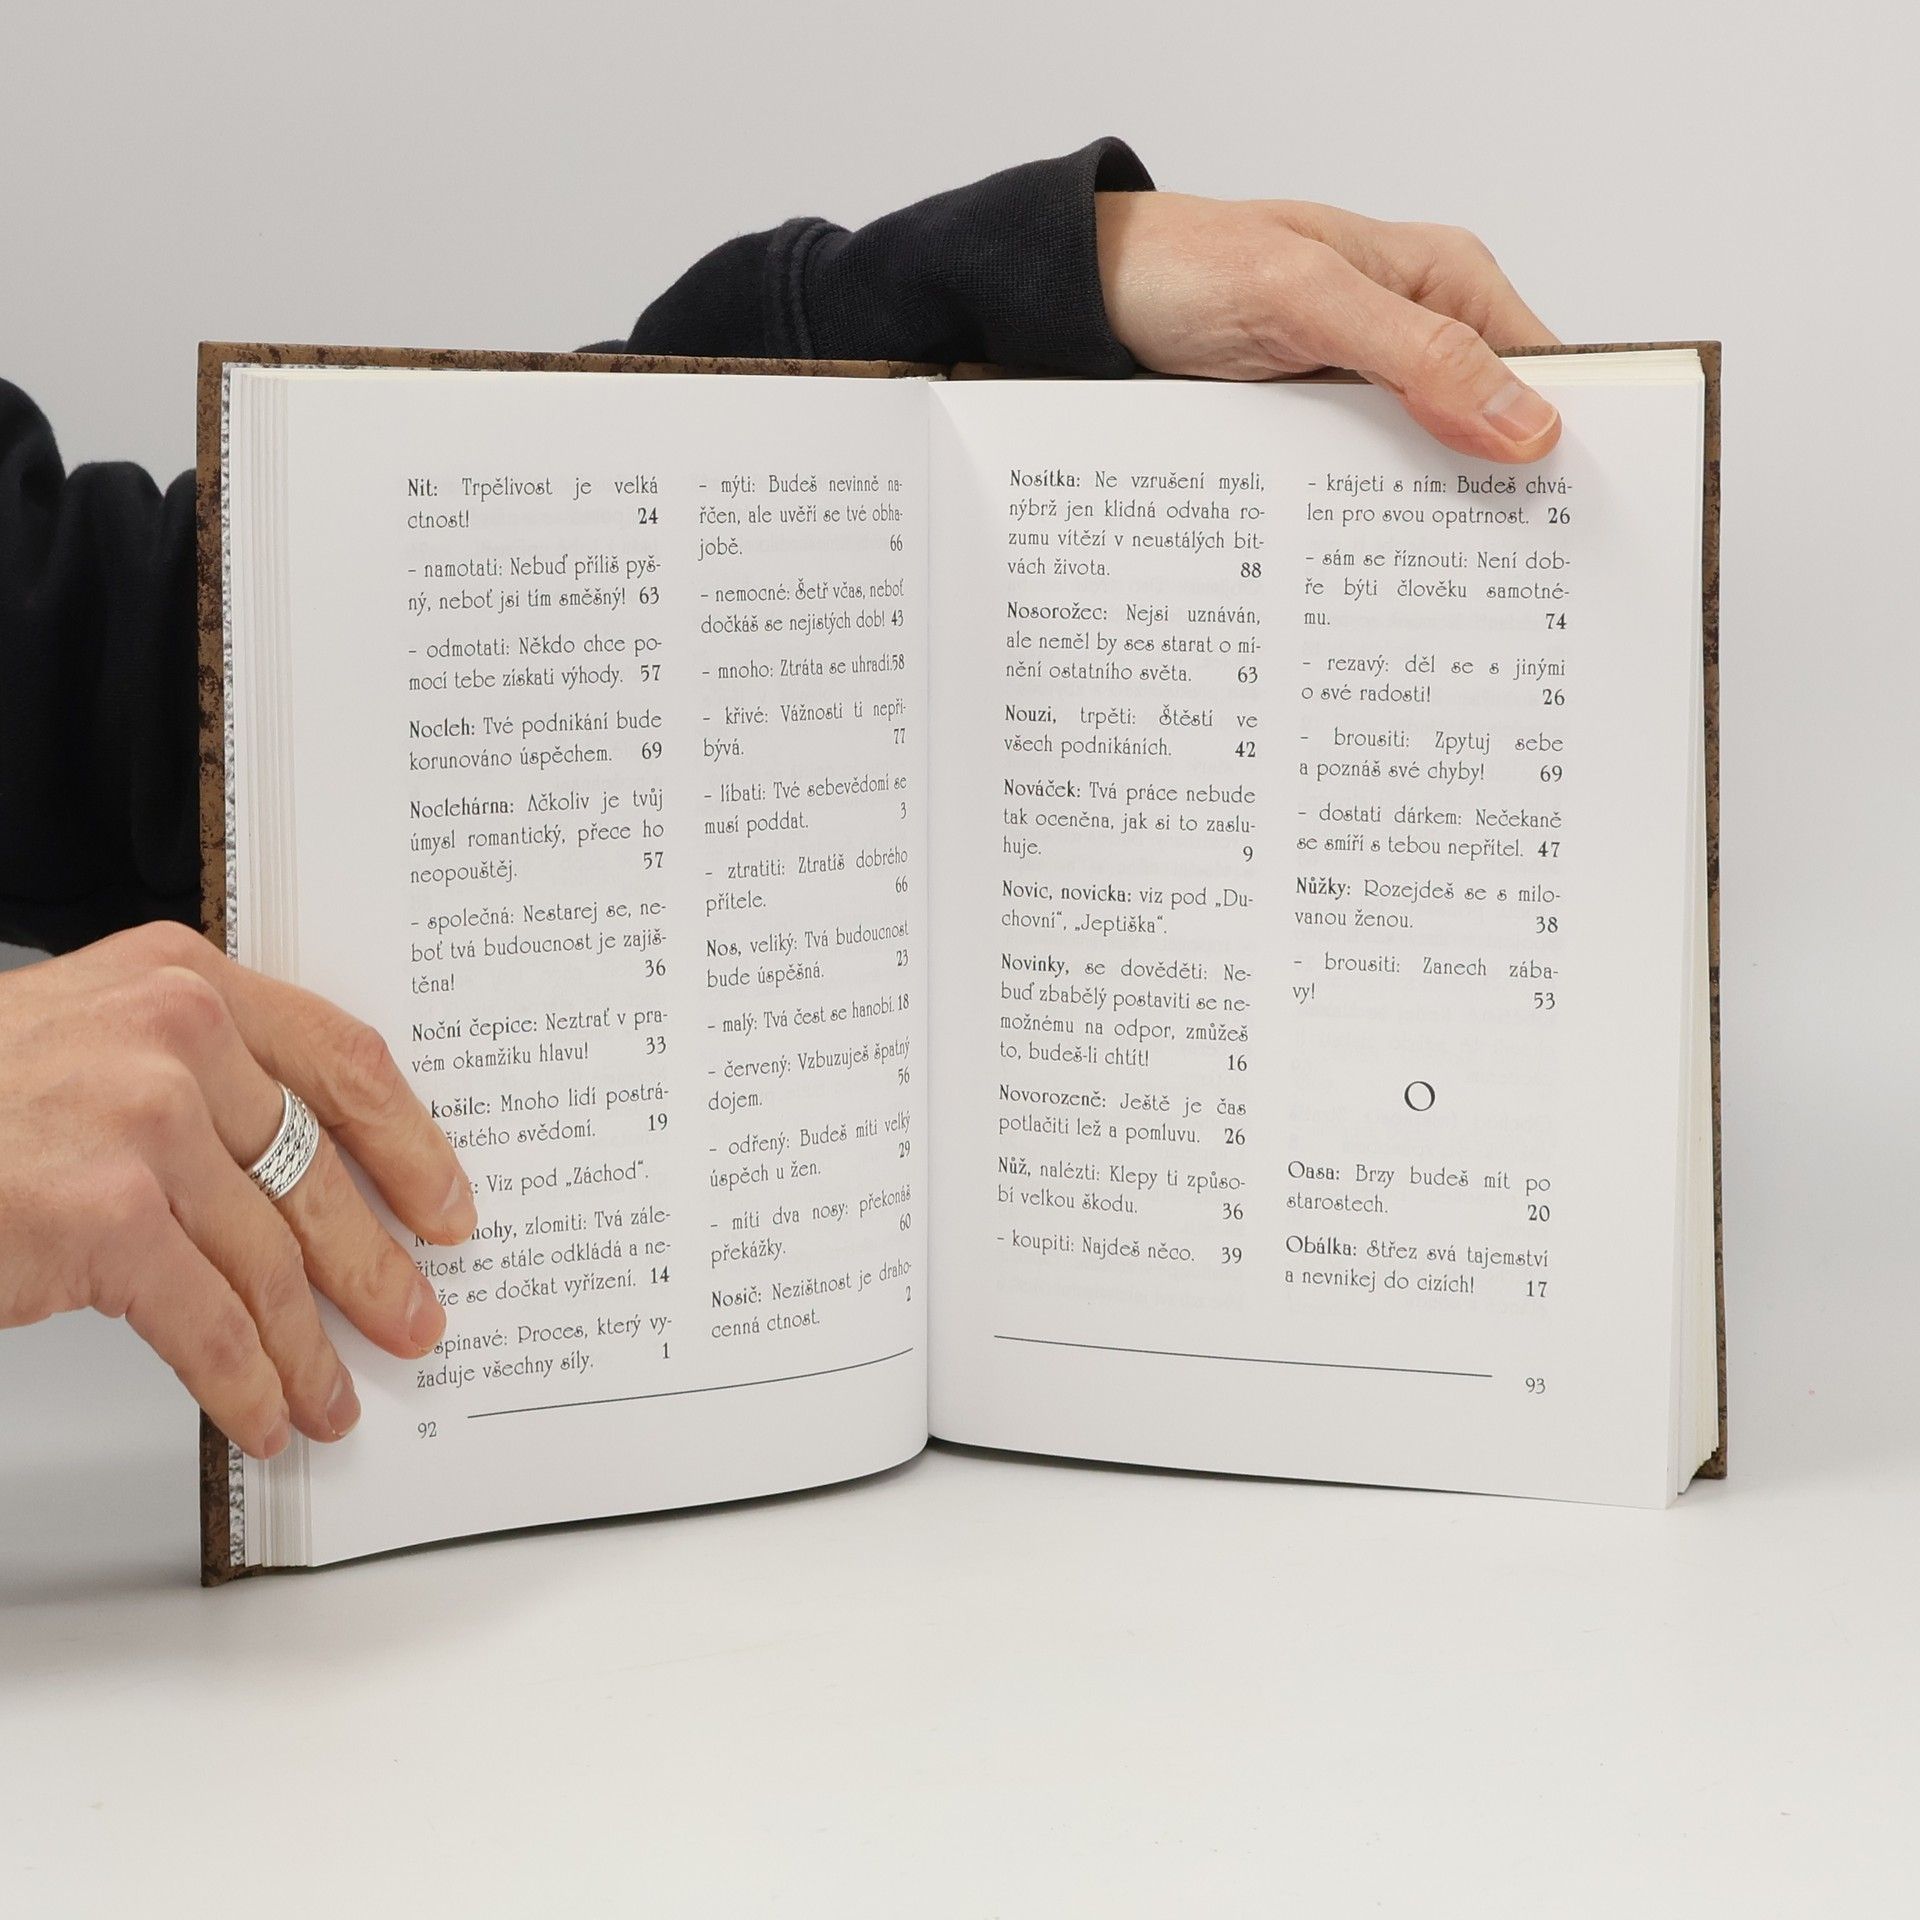 Nit: Trpělivost je velká
ctnost! 24
- namotati: Nebuď příliš pyš-
ný, neboť jsi tím směšný! 63
- odmotati: Někdo chce po-
mocí tebe získati výhody. 57
Nocleh: Tvé podnikání bude
korunováno úspěchem. 69
Noclehárna: Ačkoliv je tvůj
úmysl romantický, přece ho
neopouštěj. 57
- společná: Nestarej se, ne-
boť tvá budoucnost je zajiš-
těna! 36
Noční čepice: Neztrať v pra-
vém okamžiku hlavu! 33
košile: Mnoho lidí postrá-
svědomí. 19
: Viz pod „Záchod“.
zlomiti: Tvá zále-
se stále odkládá a ne-
se dočkat vyřízení. 14
Proces, který vy-
žaduje všechny síly. 1
92
- mýti: Budeš nevinně na-
řčen, ale uvěří se tvé obha-
jobě. 66
- nemocné: Šetř včas, neboť
dočkáš se nejistých dob! 43
- mnoho: Ztráta se uhradí.58
- křivé: Vážnosti ti nepři-
bývá. 77
- líbati: Tvé sebevědomí se
musí poddat. 3
- ztratiti: Ztratíš dobrého
přítele. 66
Nos, veliký: Tvá budoucnost
bude úspěšná. 23
- malý: Tvá čest se hanobí. 18
- červený: Vzbuzuješ špatný
dojem. 56
- odřený: Budeš míti velký
úspěch u žen. 29
- míti dva nosy: překonáš
překážky. 60
Nosič: Nezištnost je draho-
cenná ctnost. 2
Nosítka: Ne vzrušení mysli,
nýbrž jen klidná odvaha ro-
zumu vítězí v neustálých bit-
vách života. 88
Nosorožec: Nejsi uznáván,
ale neměl by ses starat o mí-
nění ostatního světa. 63
Nouzi, trpěti: Štěstí ve
všech podnikáních. 42
Nováček: Tvá práce nebude
tak oceněna, jak si to zaslu-
huje. 9
Novic, novicka: viz pod „Du-
chovní“, „Jeptiška“.
Novinky, se dověděti: Ne-
buď zbabělý postaviti se ne-
možnému na odpor, zmůžeš
to, budeš-li chtít! 16
Novorozeně: Ještě je čas
potlačiti lež a pomluvu. 26
Nůž, nalézti: Klepy ti způso-
bí velkou škodu. 36
- koupiti: Najdeš něco. 39
- krájeti s ním: Budeš chvá-
len pro svou opatrnost. 26
- sám se říznouti: Není dob-
ře býti člověku samotné-
mu. 74
- rezavý: děl se s jinými
o své radosti! 26
- brousiti: Zpytuj sebe
a poznáš své chyby! 69
- dostati dárkem: Nečekaně
se smíří s tebou nepřítel. 47
Nůžky: Rozejdeš se s milo-
vanou ženou. 38
- brousiti: Zanech zába-
vy! 53
O
Oasa: Brzy budeš mít po
starostech. 20
Obálka: Střez svá tajemství
a nevnikej do cizích! 17
93